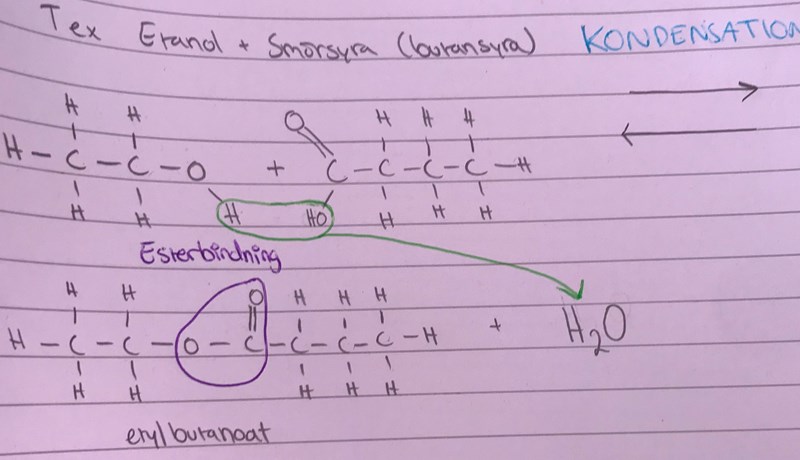 Tex Etanol + Smörsyra (butansyra) KONDENSATION
H H O H H H
H - C - C - O + C - C - C - C - H
H H H HO H H H
Esterbindning
H H O H H H
H - C - C - O - C - C - C - C - H + H₂O
H H H H H
etylbutanoat